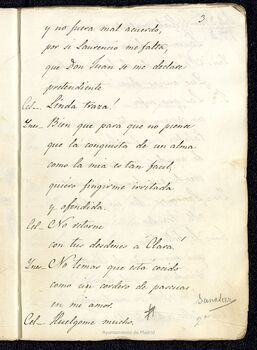 3
y no fuera mal acuerdo,
por si Laurencio me falta,
que Don Juan se me declare
pretendiente
Cel_ Linda traza!
Ynes_ Bien que para que no piense
que la conquista de un alma
como la mia es tan facil,
quiero fingirme irritada
y ofendida.
Cel_ No retorne
con tus desdenes á Clara!
Ynes_ No temas que está cosido
como un cordero de pascuas
en mi amor.
Cel_ Huelgome mucho.
Ayuntamiento de Madrid